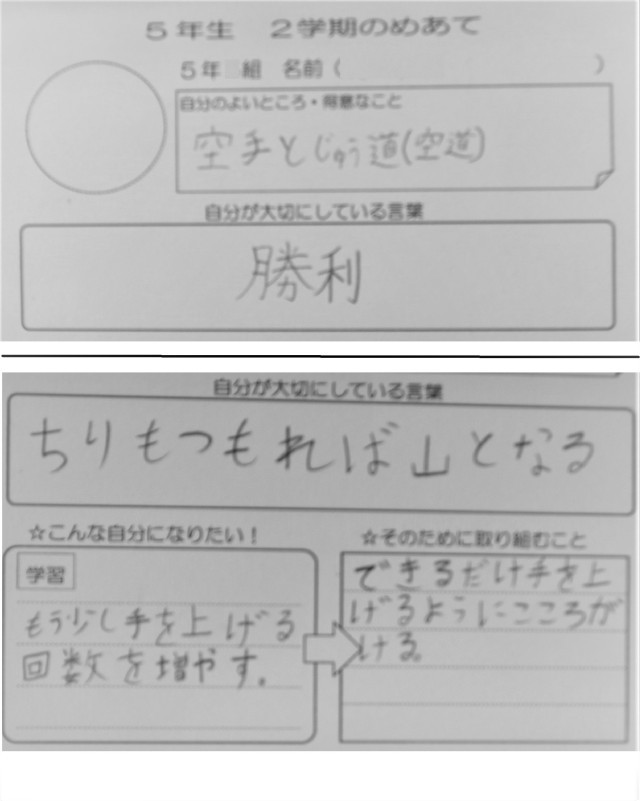 5年生 2学期のめあて
5年 組 名前( )
自分のよいところ・得意なこと
空手とじゅう道(空道)
自分が大切にしている言葉
勝利
自分が大切にしている言葉
ちりもつもれば山となる
☆こんな自分になりたい!
学習
もう少し手を上げる
回数を増やす。
☆そのために取り組むこと
できるだけ手を上
げるようにこころが
ける。